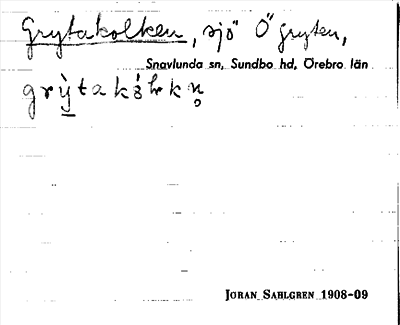 Grytakolken, sjö Ö gryten,
Snavlunda sn, Sundbo hd, Örebro län
JÖRAN SAHLGREN 1908-09